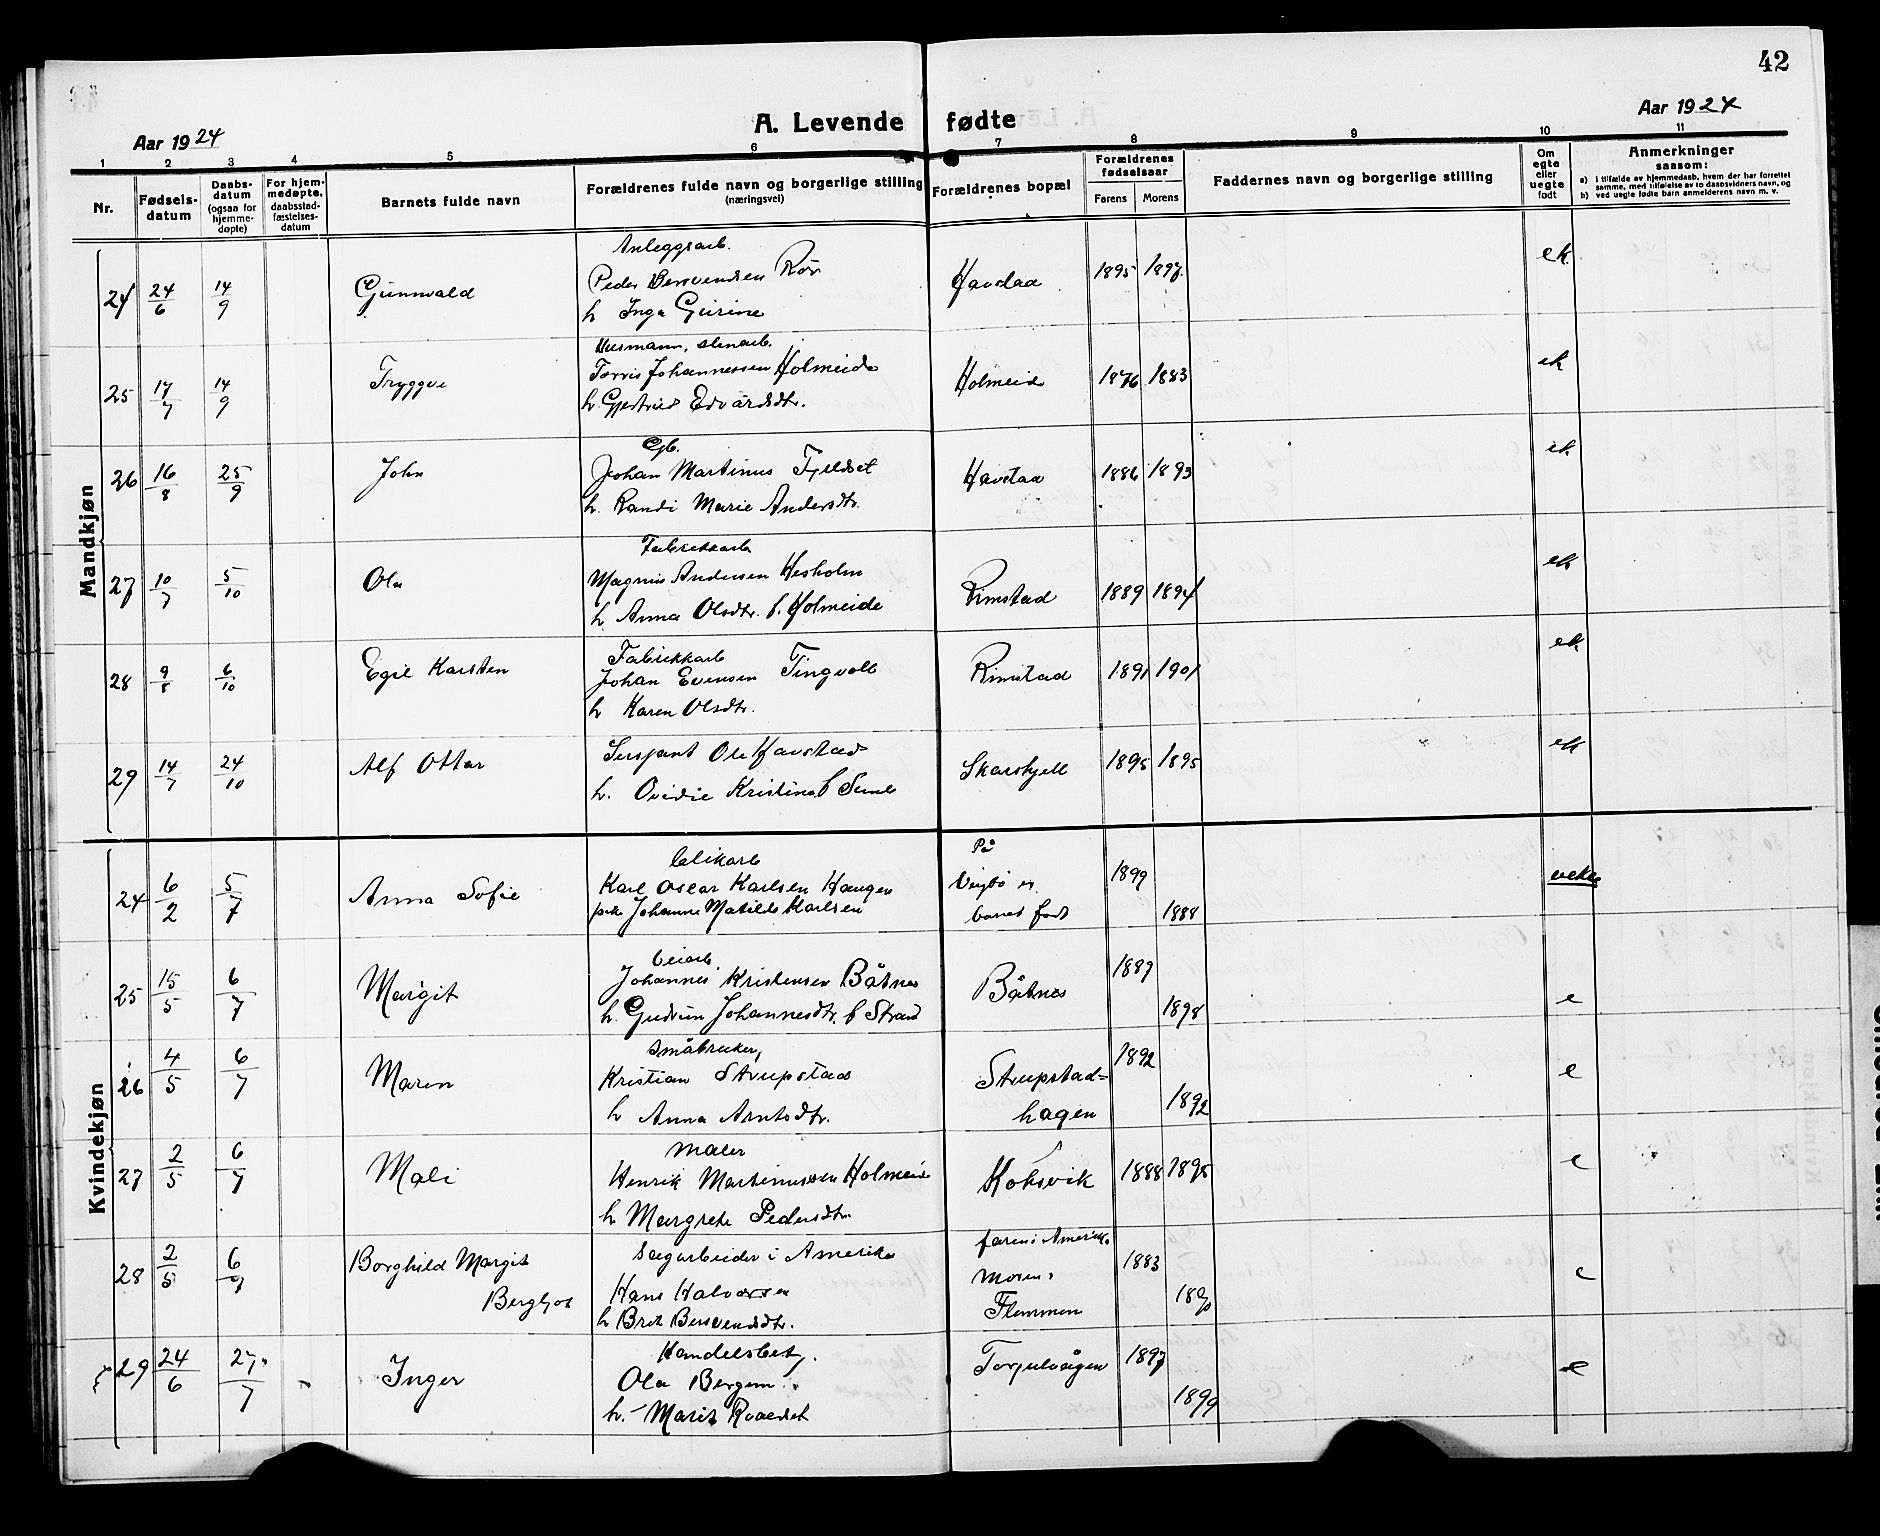 42
Aar 1924
A. Levende fødte
Aar 1924
1 2 3 4 5 6 7 8 9 10 11
Nr.
Fødsels-
datum
Daabs-
datum
(ogsaa for
hjemme-
døpte)
For hjem-
medøpte,
daabsstad-
fæstelses-
datum
Barnets fulde navn
Forældrenes fulde navn og borgerlige stilling
(næringsvei)
Forældrenes bopæl
Forældrenes
fødselsaar
Farens Morens
Faddernes navn og borgerlige stilling
Om
egte
eller
uegte
født
Anmerkninger
saasom:
a) i tilfælde av hjemmedaab, hvem der har forrettet
samme, med tilføielse av to daabsvidners navn, og
b) ved uegte fødte barn anmelderens navn m. v.
Mandkjøn
Anleggsarb.
24 24/6 14/9 Gunnvald Peder Bersvendsen Rør Havstad 1895 1897 ek.
h Inga Gurine
Husmann, stenarb.
25 17/7 14/9 Tryggve Torris Johannessen Holmeide Holmeide 1876 1883 ek
h. Gjertrud Edvardsdtr.
Gb.
26 16/8 25/9 John Johan Martinus Fjeldset Havstad 1886 1893 ek
h. Randi Marie Andersdtr.
Fabrikkarb
27 10/7 5/10 Ola Magnus Andersen Hesholm Rimstad 1889 1894 ek
h Anna Olsdtr. f. Holmeide
Fabrikkarb
28 9/8 6/10 Egil Karsten Johan Evensen Tingvoll Rimstad 1891 1901 ek
h Karen Olsdtr.
29 14/7 24/10 Alf Ottar Sersjant Ole Havstad Skarskjell 1895 1895 ek
h. Ovidie Kristine f
Kvindekjøn
24 6/2 5/7 Anna Sofie Karl Oscar Karlsen Haugen På 1899 uekte
pike Johanne Matilde Karlsen barnet født 1888
Veiarb.
25 15/5 6/7 Margit Johannes Kristensen Båtnes Båtnes 1889 e
h. Gudrun Johannesdtr. f Strand 1898
Småbruker,
26 4/5 6/7 Maren Kristian Strupstad Strupstad= 1892 e
h Anna Arntsdtr. hagen 1892
Maler
27 2/5 6/7 Mali Henrik Martinussen Holmeide Koksvik 1888 1895 e
h Margrete Pedersdtr.
Sagarbeider i Amerika faren i Amerika
28 2/5 6/7 Borghild Margit Hans Halvorsen Moren i 1883 e
Bergljot h Brit Bersvendsdtr. Flemmen 1890
Handelsbetj.
29 24/6 27/7 Inger Ola Bergem Torjulvågen 1897 e
h. Marit Roaldset 1899